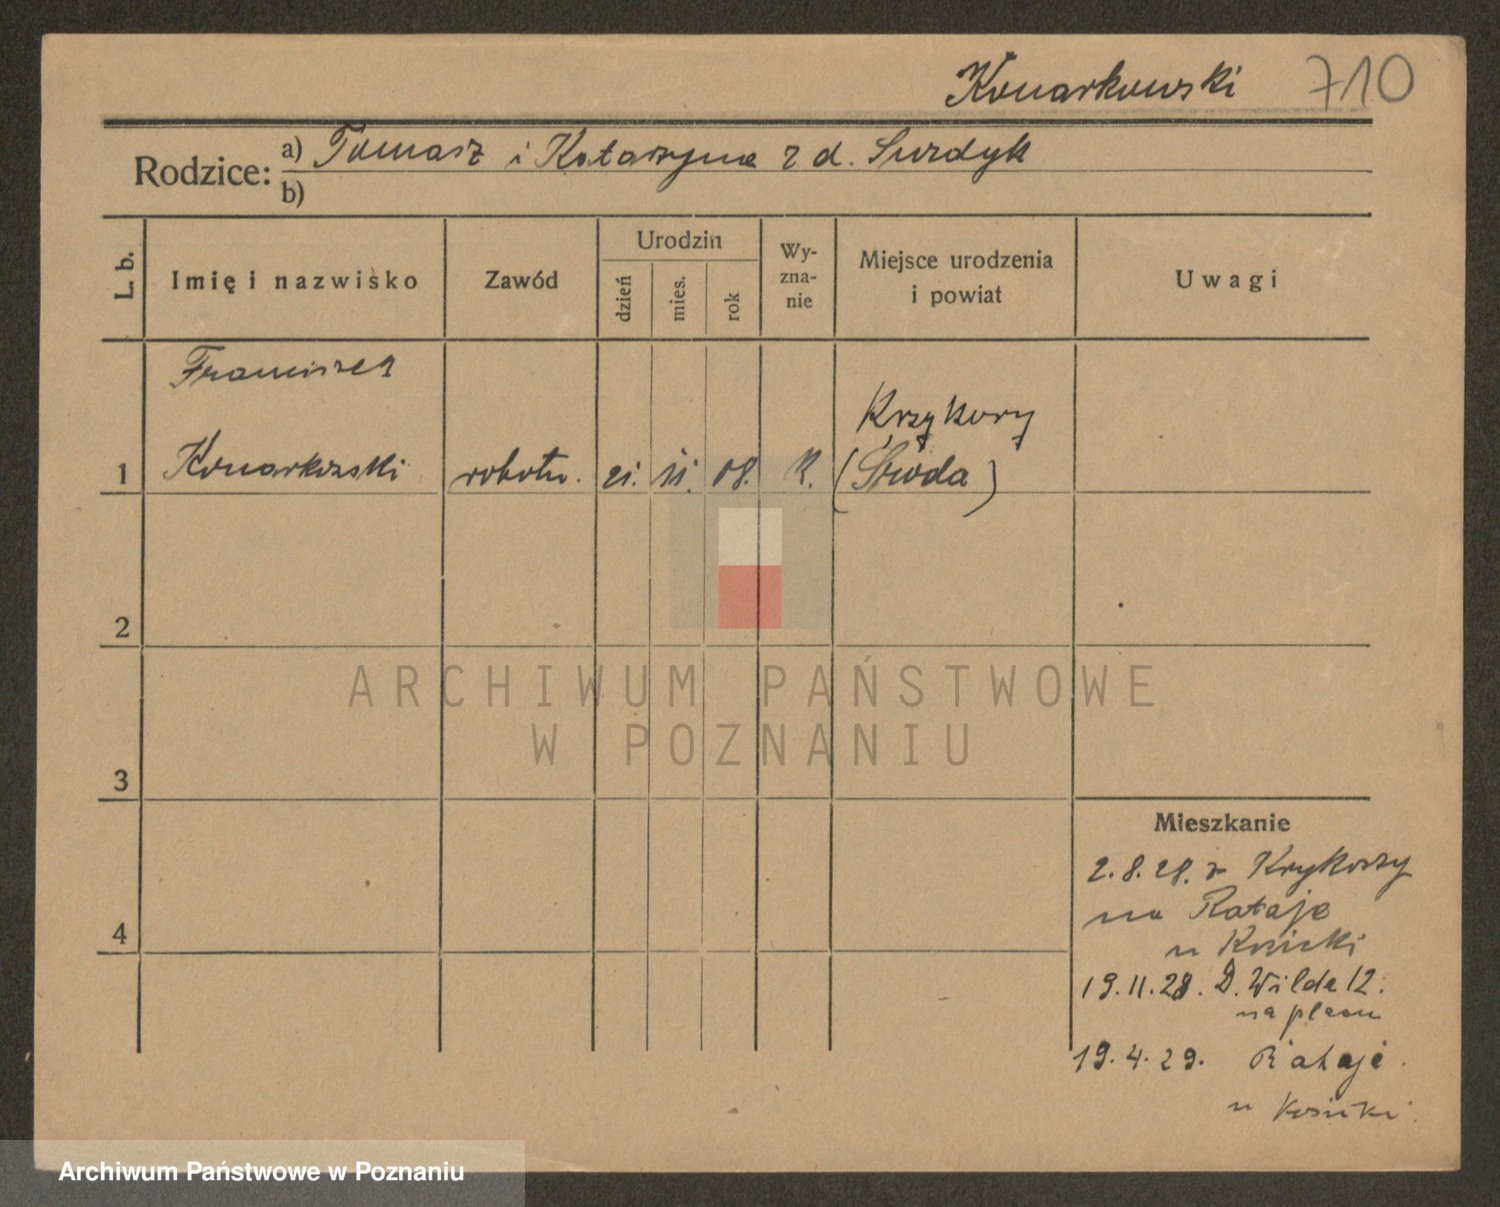 Konarkowski 710
Rodzice: a) Tomasz i Katarzyna z d. Surdyk
b)
L. b. Imię i nazwisko Zawód Urodzin dzień mies. rok Wy-zna-nie Miejsce urodzenia i powiat Uwagi
Franciszek
Krzykosy
1 Konarkowski robotn. 21. 11. 08. K. (Środa)
2
3
4
Mieszkanie
2.8.28. z Krzykosy
na Rataje
u Kosicki
19.11.28. D. Wilda 12.
na placu
19.4.29. Rataje.
u Kosicki.
ARCHIWUM PAŃSTWOWE
W POZNANIU
Archiwum Państwowe w Poznaniu